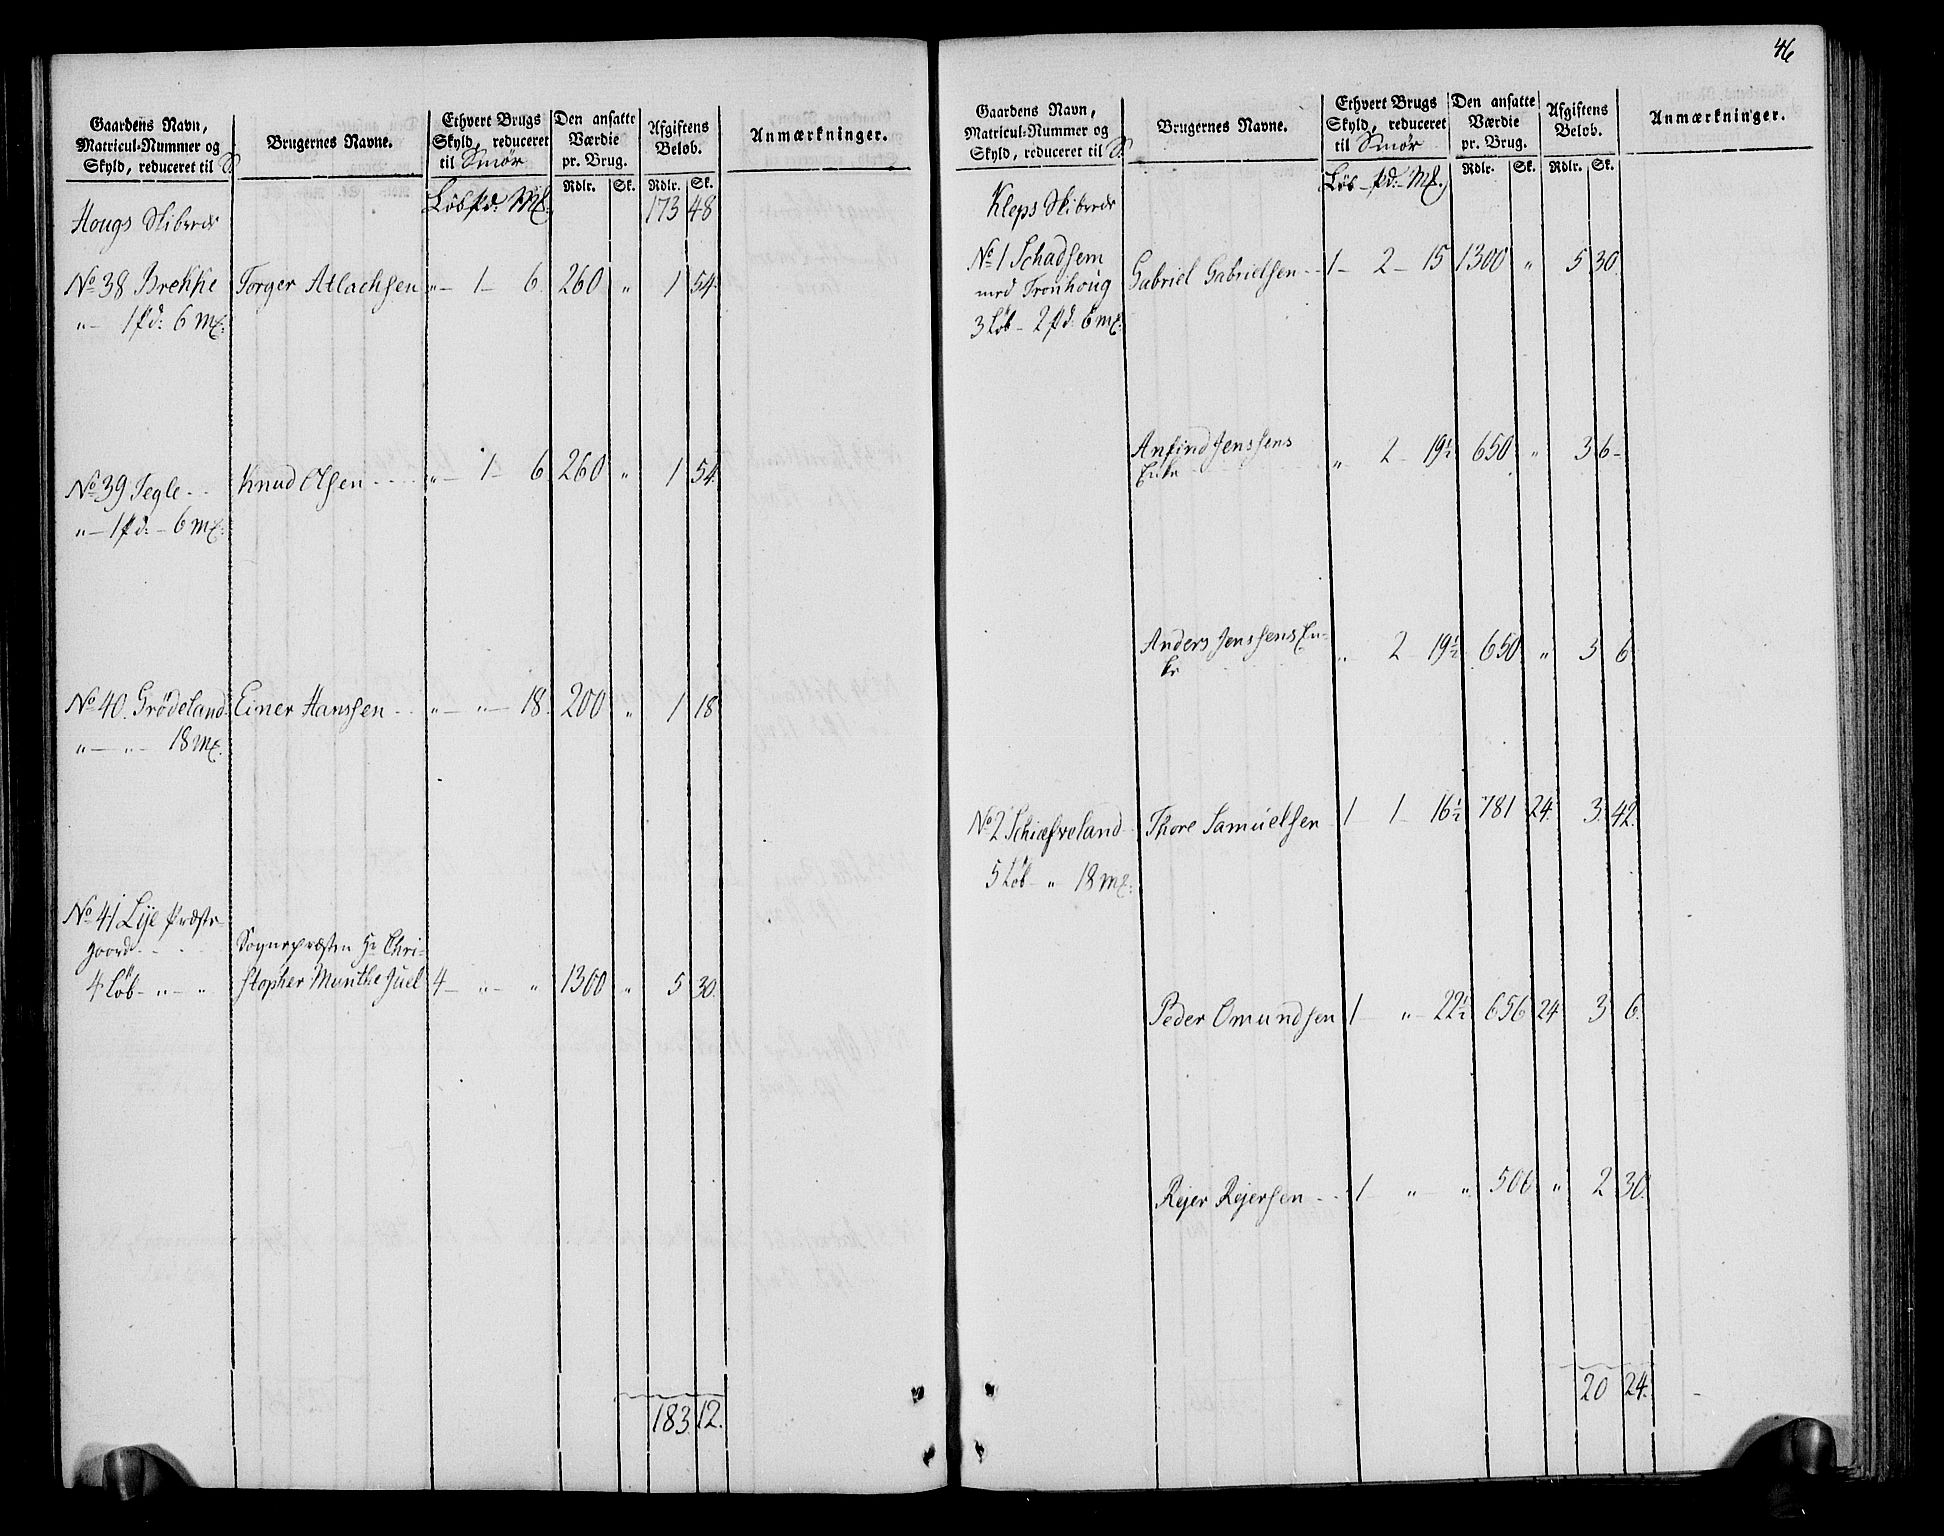 Gaardens Navn,
Matricul-Nummer og
Skyld, reduceret til S.
Brugernes Navne.
Ethvert Brugs
Skyld, reduceret
til Smør
Den ansatte
Værdie
pr. Brug.
Afgiftens
Beløb.
Anmærkninger.
Rdlr. Sk. Rdlr. Sk.
Løb pd: M&
173 48
Hougs Skibrede
No 38 Brekke Torger Atlachsen „ 1 6. 260 „ 1 54.
„ 1 pd: 6 M&
No 39 Tegle Knud Olsen „ 1 6 260 „ 1 54.
„ 1 pd: 6 M&
No 40. Grödeland Einer Hanssen „ „ 18. 200 „ 1 18
„ „ 18 M&
No 41 Lye Præste-
gaard
4 Löb „ „
Sognepræsten Hr Chri-
stopher Munthe Juel 4 „ „ 1300 „ 5 30.
183 12.
46
Gaardens Navn,
Matricul-Nummer og
Skyld, reduceret til S.
Brugernes Navne.
Ethvert Brugs
Skyld, reduceret
til Smør
Den ansatte
Værdie
pr. Brug.
Afgiftens
Beløb.
Anmærkninger.
Rdlr. Sk. Rdlr. Sk.
Løb pd: M&
Kleps Skibrede
No 1 Schadsem
med Tronhoug
3 Löb 2 pd: 6 M&
Gabriel Gabrielsen 1 2 15 1300 „ 5 30.
Anfind Jenssens
Enke „ 2 19½ 650 „ 3 6
Anders Jenssens En-
ke „ 2 19½ 650 „ 3 6
No 2 Schiefveland Thore Samuelsen 1 1 16½ 781 24. 3. 42.
5 Löb „ 18 M&
Peder Omundsen 1 „ 22½ 656 24 3 6.
Rejer Rejersen 1 „ „ 506 „ 2 30.
20 24.